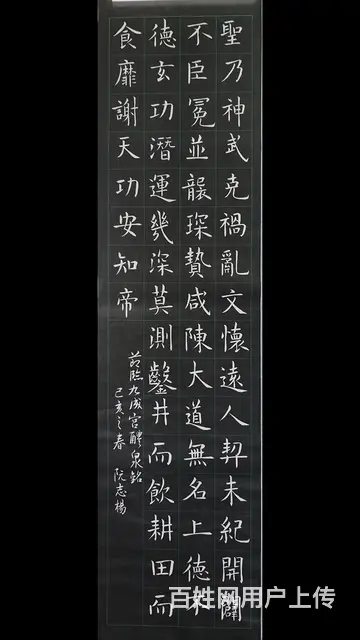 聖乃神武克禍亂文懷遠人契未紀開闢
不臣冕並襲琛贄咸陳大道無名上德不
德玄功潛運幾深莫測鑿井而飲耕田而
食靡謝天功安知帝
節臨九成宮醴泉銘
己亥之春 阮志楊
百姓网用户上传